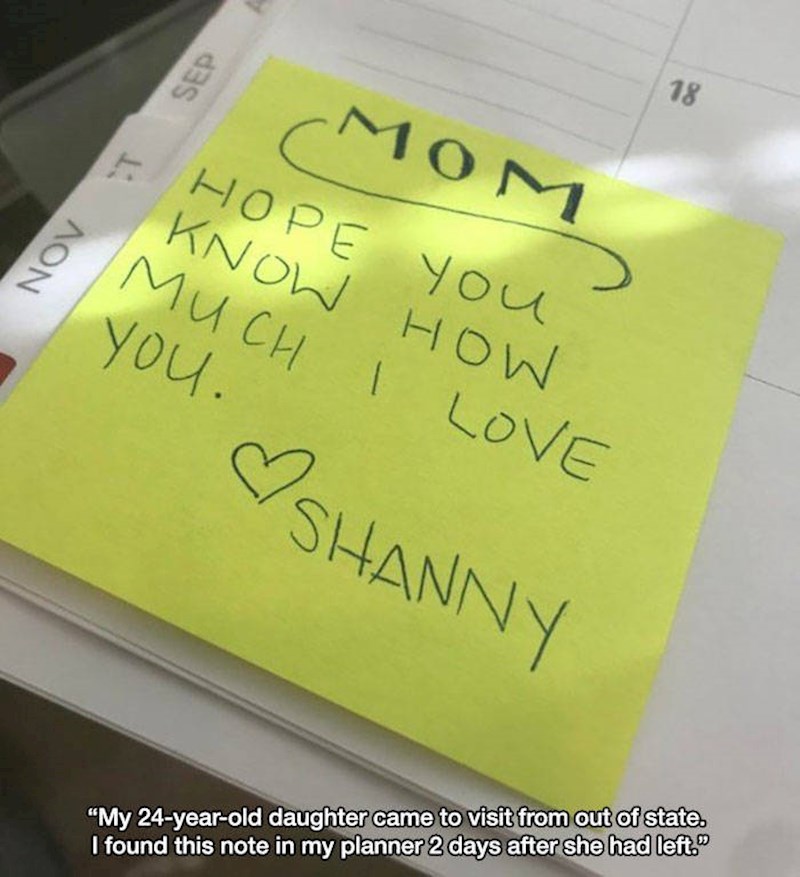 SEP
18
T
NOV
MOM
HOPE YOU
KNOW HOW
MUCH I LOVE
YOU.
♡SHANNY
“My 24-year-old daughter came to visit from out of state.
I found this note in my planner 2 days after she had left.”